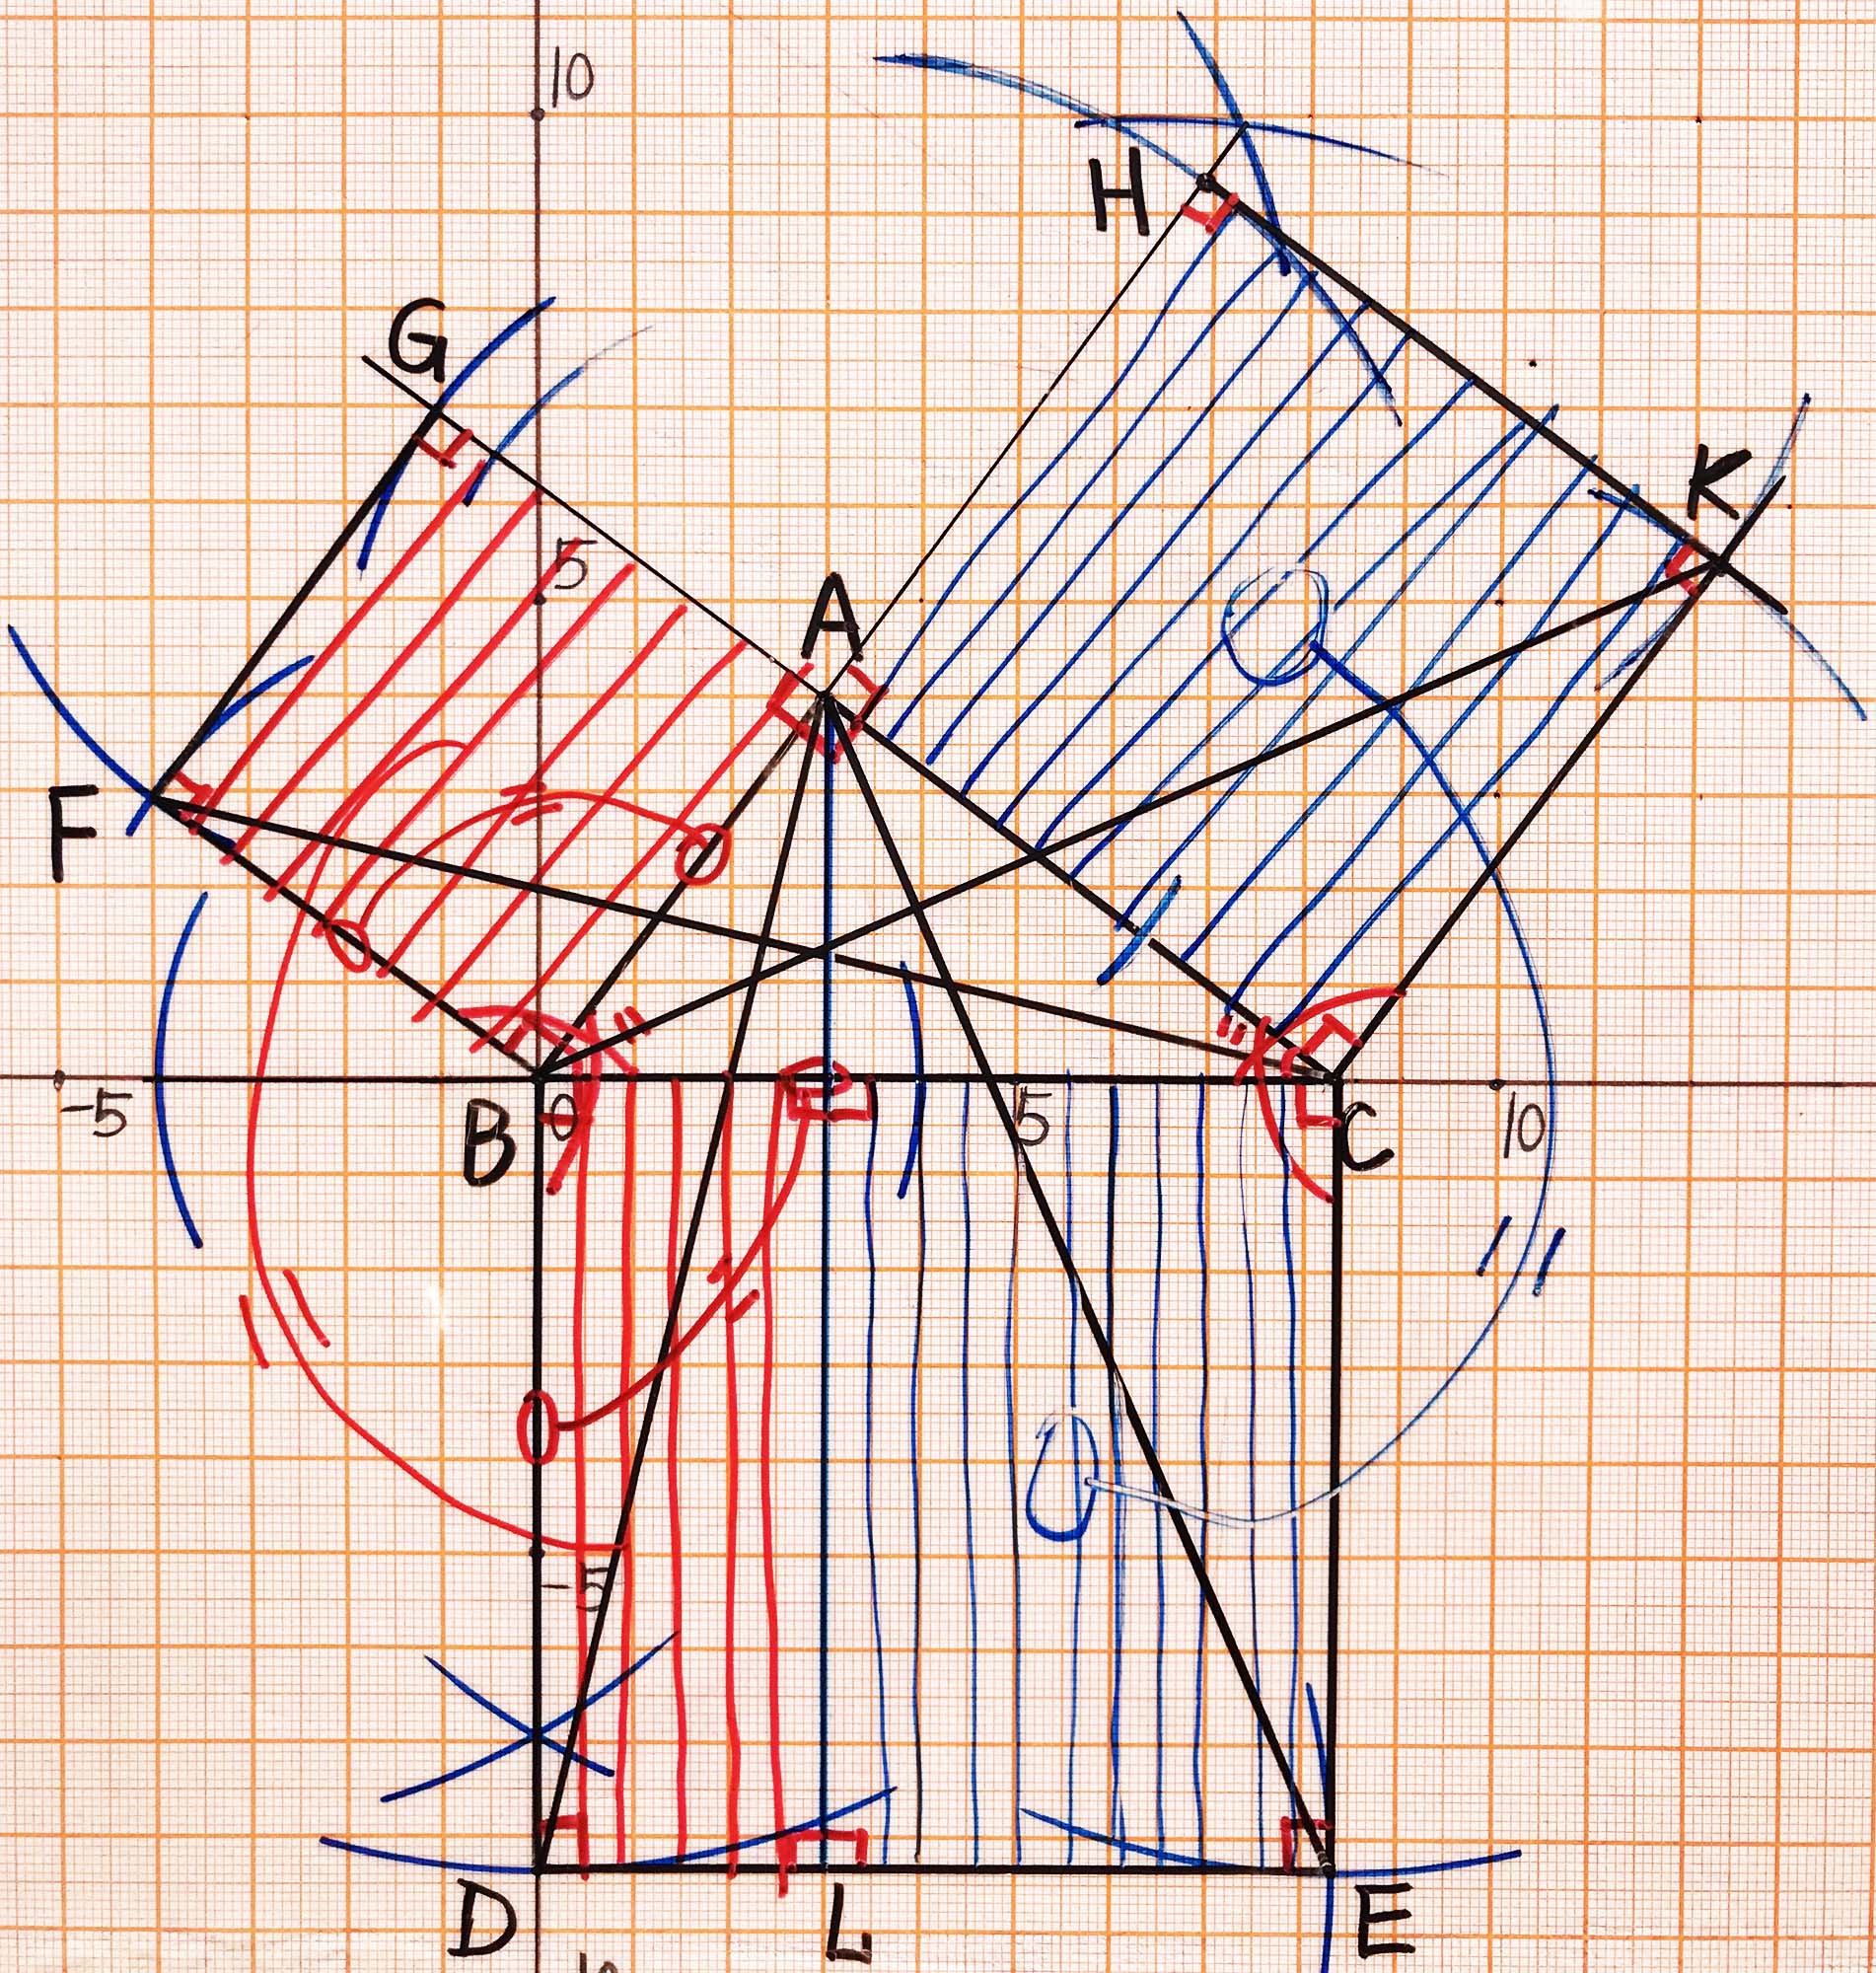 10
H
G
K
5
A
F
-5
B
0
5
C
10
-5
D
L
E